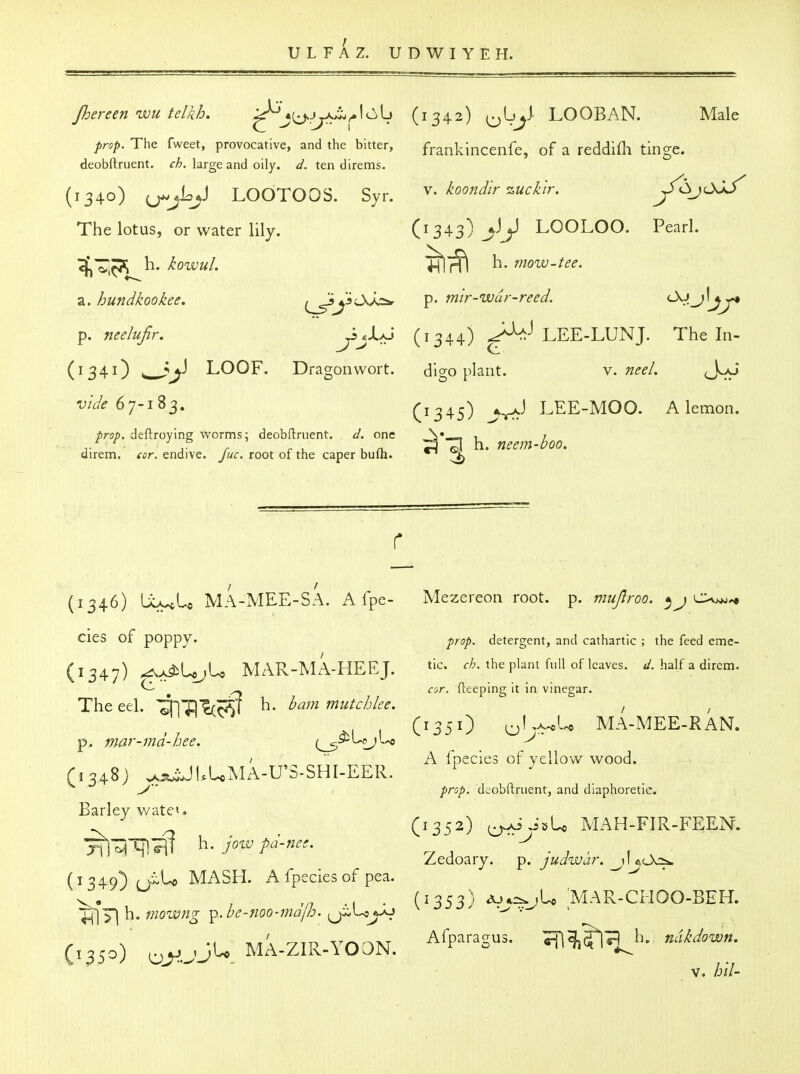 ULFÁZ. UDWIYEH.
ſhereen wu telkh. بادام شيرين و تلخ
prop. The ſweet, provocative, and the bitter,
deobſtruent. ch. large and oily. d. ten direms.
(1340) لوطوس LOOTOOS. Syr.
The lotus, or water lily.
h. kowul.
a. hundkookee. حندقوقي
p. neelufir. نيلوفر
(1341) لوف LOOF. Dragonwort.
vide 67-183.
prop. deſtroying worms; deobſtruent. d. one
direm. cor. endive. ſuc. root of the caper buſh.
(1342) لوبان LOOBAN. Male
frankincenſe, of a reddiſh tinge.
v. koondir zuckir. كندر ذكر
(1343) لولو LOOLOO. Pearl.
मोती h. mow-tee.
p. mir-wár-reed. مرواريد
(1344) ليلنج LEE-LUNJ. The In-
digo plant. v. neel. نيل
(1345) ليمو LEE-MOO. A lemon.
h. neem-boo.
م
(1346) ماميسا MÁ-MEE-SÁ. A ſpe-
cies of poppy.
(1347) مارماهيج MAR-MÁ-HEEJ.
The eel. h. bam mutchlee.
p. mar-má-hee. مارماهي
(1348) ماءالشعير MÁ-U'S-SHI-EER.
Barley water.
h. jow pá-nee.
(1349) ماش MASH. A ſpecies of pea.
h. mowng p. be-noo-máſh. بنوماش
(1350) مازريون MÁ-ZIR-YOON.
Mezereon root. p. muſtroo. مشت رو
prop. detergent, and cathartic ; the ſeed eme-
tic. ch. the plant full of leaves. d. half a direm.
cor. ſteeping it in vinegar.
(1351) ماميران MÁ-MEE-RÁN.
A ſpecies of yellow wood.
prop. deobſtruent, and diaphoretic.
(1352) ماهفرفين MAH-FIR-FEEN.
Zedoary. p. judwár. جدوار
(1353) مارچوبه MAR-CHOO-BEH.
Aſparagus. h. nákdown.
v. hil-